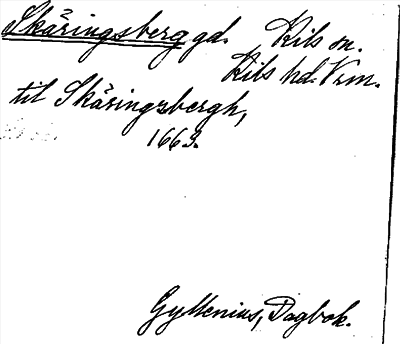 Skäringsberg gd. Kils sn.
Kils hd. Vrm.
til Skäringzbergh,
1663.
Gyllenius, Dagbok.